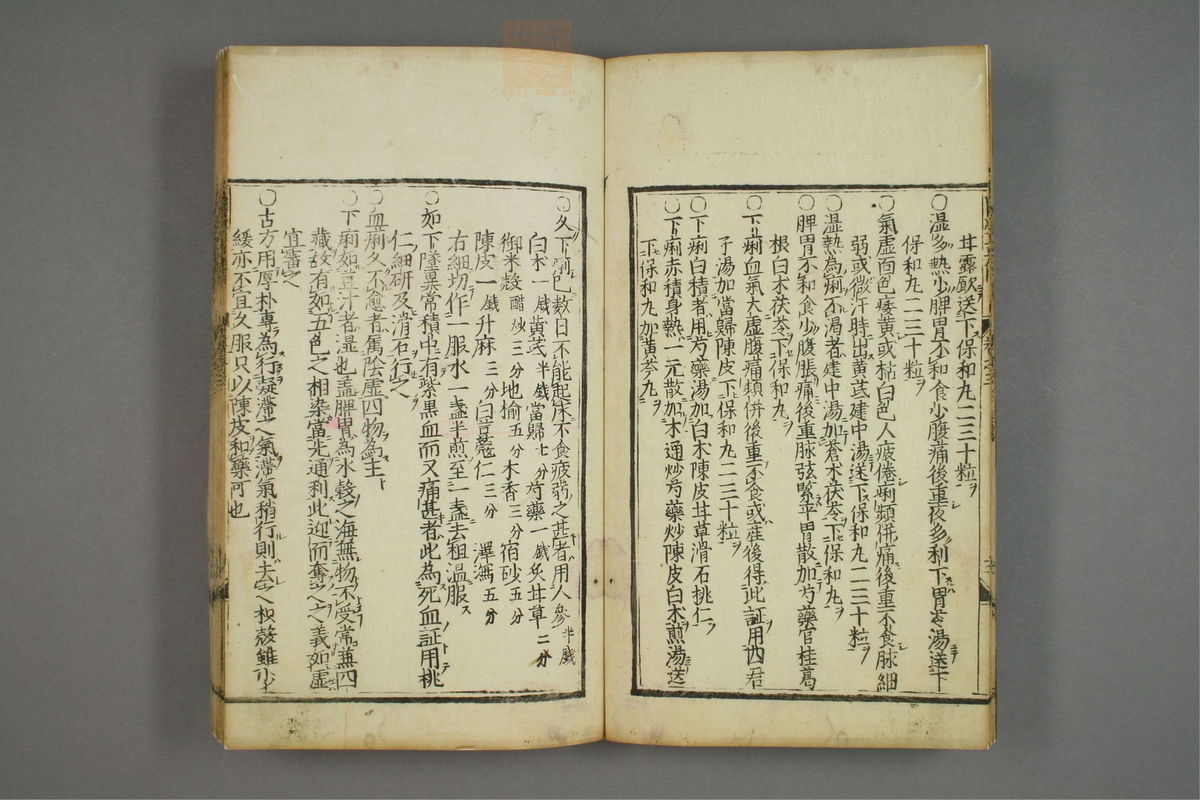 甘露飲送下保和丸二三十粒ヲ
○温多熱少脾胃不和食少腹痛後重夜多利下胃苓湯送下
保和丸二三十粒ヲ
○氣虚面色痿黄或枯白色人疲倦痢頻併痛後重不食脉細
弱或微汗時出黄芪建中湯送下保和丸二三十粒ヲ
○温熱為痢不渇者建中湯加蒼朮茯苓下保和丸ヲ
○脾胃不和食少腹脹痛後重脉弦緊平胃散加芍藥官桂葛
根白朮茯苓下保和丸ヲ
○下痢血氣大虚腹痛頻併後重不食或産後得此証用四君
子湯加當歸陳皮下保和丸二三十粒ヲ
○下痢白積者用芍藥湯加白朮陳皮甘草滑石桃仁ヲ
○下痢赤積身熱一元散加木通炒芍藥炒陳皮白朮煎湯送
下保和丸加黄芩丸ヲ
○久下痢已數日不能起床不食疲弱之甚者用人參半戔
白朮一戔黄芪半戔當歸七分芍藥一戔炙甘草二分
御米殻醋炒三分地楡五分木香三分宿砂五分
陳皮一戔升麻三分白荳蔻仁三分澤瀉五分
右細切作一服水一盞半煎至一盞去粗温服
○如下墜異常積中有紫黒血而又痛甚者此為死血証用桃
仁細研及滑石行之
○血痢久不愈者属陰虚四物為主
○下痢如荳汁者湿也盖脾胃為水穀之海無物不受常兼四
藏故有如五色之相染當先通利此迎而奪之之義如虚
宜審之
○古方用厚朴專為行凝滯之氣滯氣稍行則去之枳殻雖少
緩亦不宜久服只以陳皮和藥可也